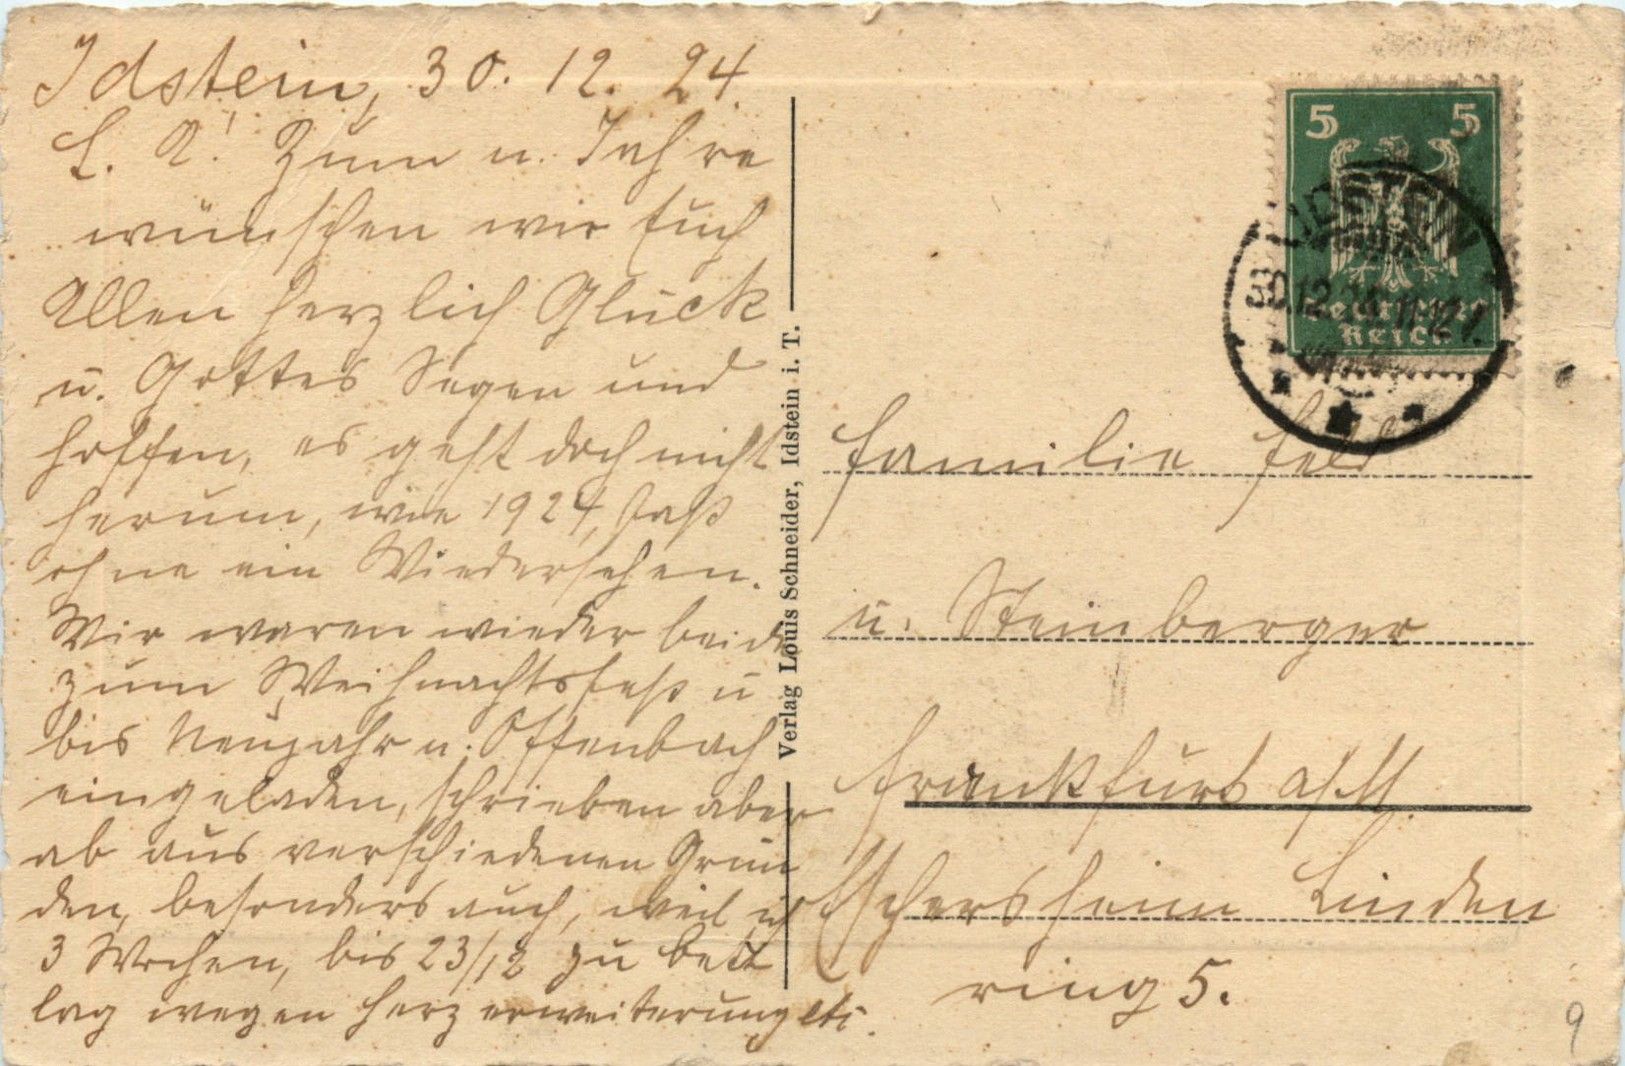 Idstein, 30. 12. 24.
L. A! Zum n. Jahre
wünschen wir Euch
Allen herzlich Glück
u. Gottes Segen und
hoffen, es geht doch nicht
herum, wie 1924, fast
ohne ein Wiedersehen.
Wir waren wieder beide
zum Weihnachtsfest u
bis Neujahr n. Offenbach
eingeladen, schrieben aber
ab aus verschiedenen Grün
den, besonders auch, weil ich
3 Wochen, bis 23/12 zu bett
lag wegen Herzerweiterung etc.
Verlag Louis Schneider, Idstein i. T.
5 5
Deutsches
Reich
IDSTEIN
30.12.24. 11-12 V.
Familie Feld
u. Steinberger
Frankfurt a/M.
Eschersheim Linden
ring 5.
9